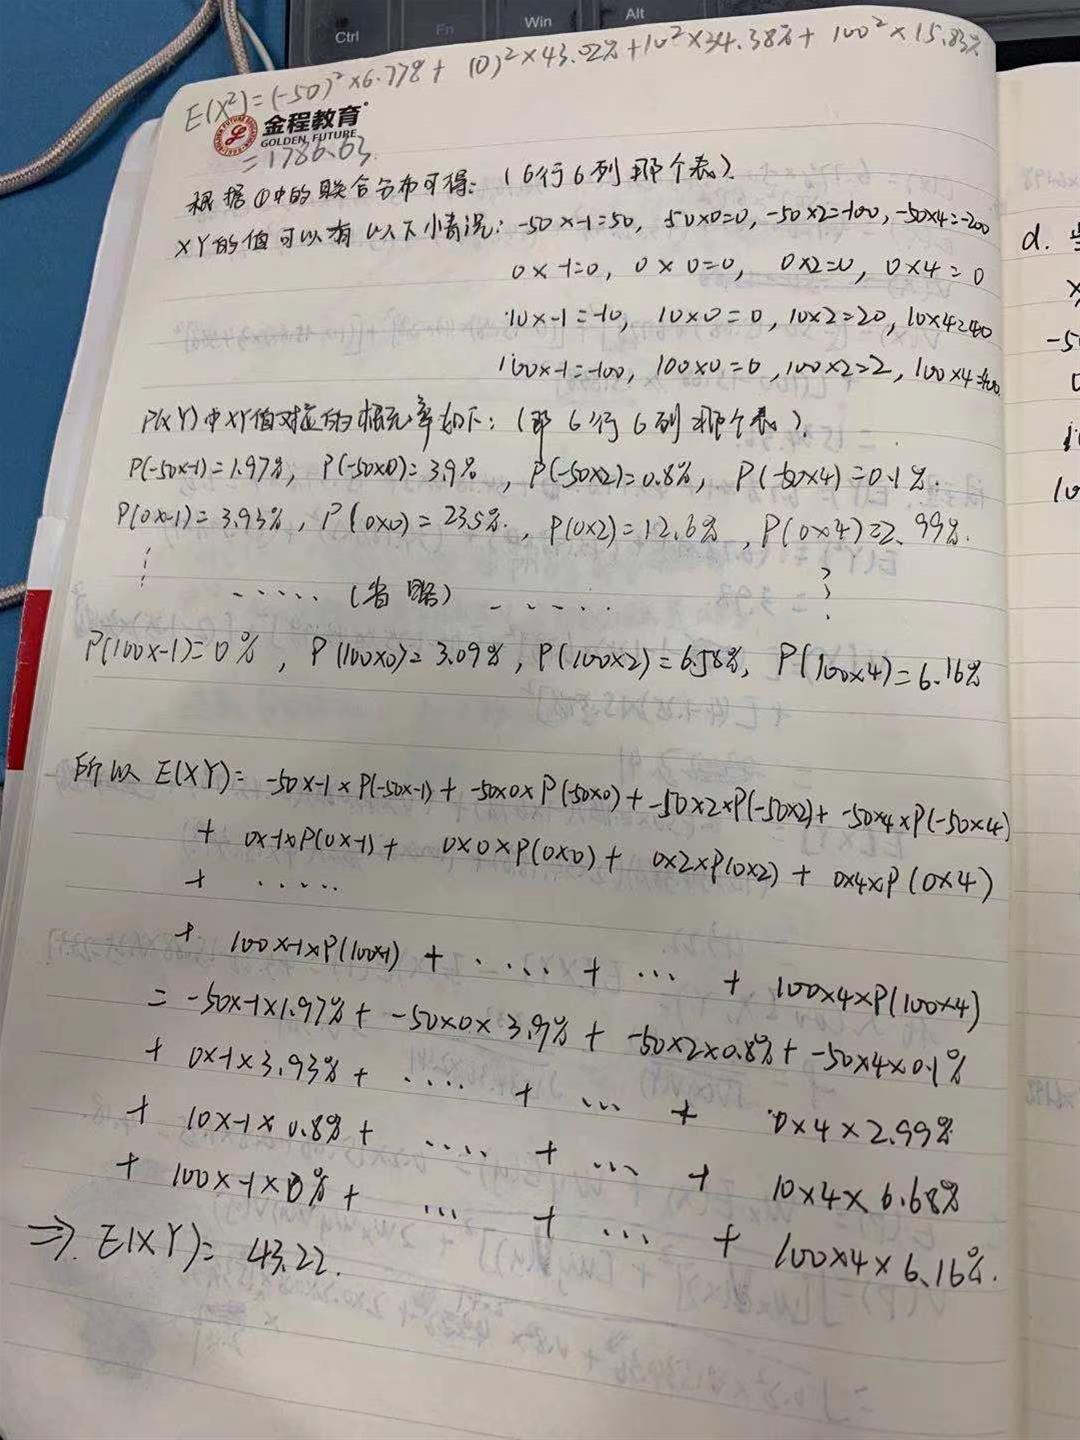 Ctrl
Fn
Win
Alt
E(X²)=(-50)²×6.77%+ (0)²×43.02%+10²×34.38%+ 100²×15.83%
金程教育
GOLDEN FUTURE
=1786.63
根据①中的联合分布可得: (6行6列那个表).
XY的值可以有以下小情况: -50×-1=50, 50×0=0, -50×2=-100, -50×4=-200
0×-1=0, 0×0=0, 0×2=0, 0×4=0
10×-1=-10, 10×0=0, 10×2=20, 10×4=40
100×-1=-100, 100×0=0, 100×2=2, 100×4=400
P(XY)中XY值对应的概率如下: (那6行6列那个表).
P(-50×-1)=1.97%, P(-50×0)=3.9%, P(-50×2)=0.8%, P(-50×4)=0.1%.
P(0×-1)=3.93%, P(0×0)=23.5%., P(0×2)=12.6%, P(0×4)=2.99%.
..... (省略) .....
P(100×-1)=0%, P(100×0)=3.09%, P(100×2)=6.58%, P(100×4)=6.16%
所以 E(XY)= -50×-1×P(-50×-1)+ -50×0×P(-50×0)+ -50×2×P(-50×2)+ -50×4×P(-50×4)
+ 0×-1×P(0×-1)+ 0×0×P(0×0)+ 0×2×P(0×2)+ 0×4×P(0×4)
+ .....
+ 100×-1×P(100×-1) + .... + ... + 100×4×P(100×4)
= -50×-1×1.97%+ -50×0×3.9%+ -50×2×0.8%+ -50×4×0.1%
+ 0×-1×3.93%+ .... + ... + 0×4×2.99%
+ 10×-1×0.8%+ .... + ... + 10×4×6.68%
+ 100×-1×0%+ ... + ... + 100×4×6.16%.
⇒ E(XY)= 43.22.
d.
-5
0
10